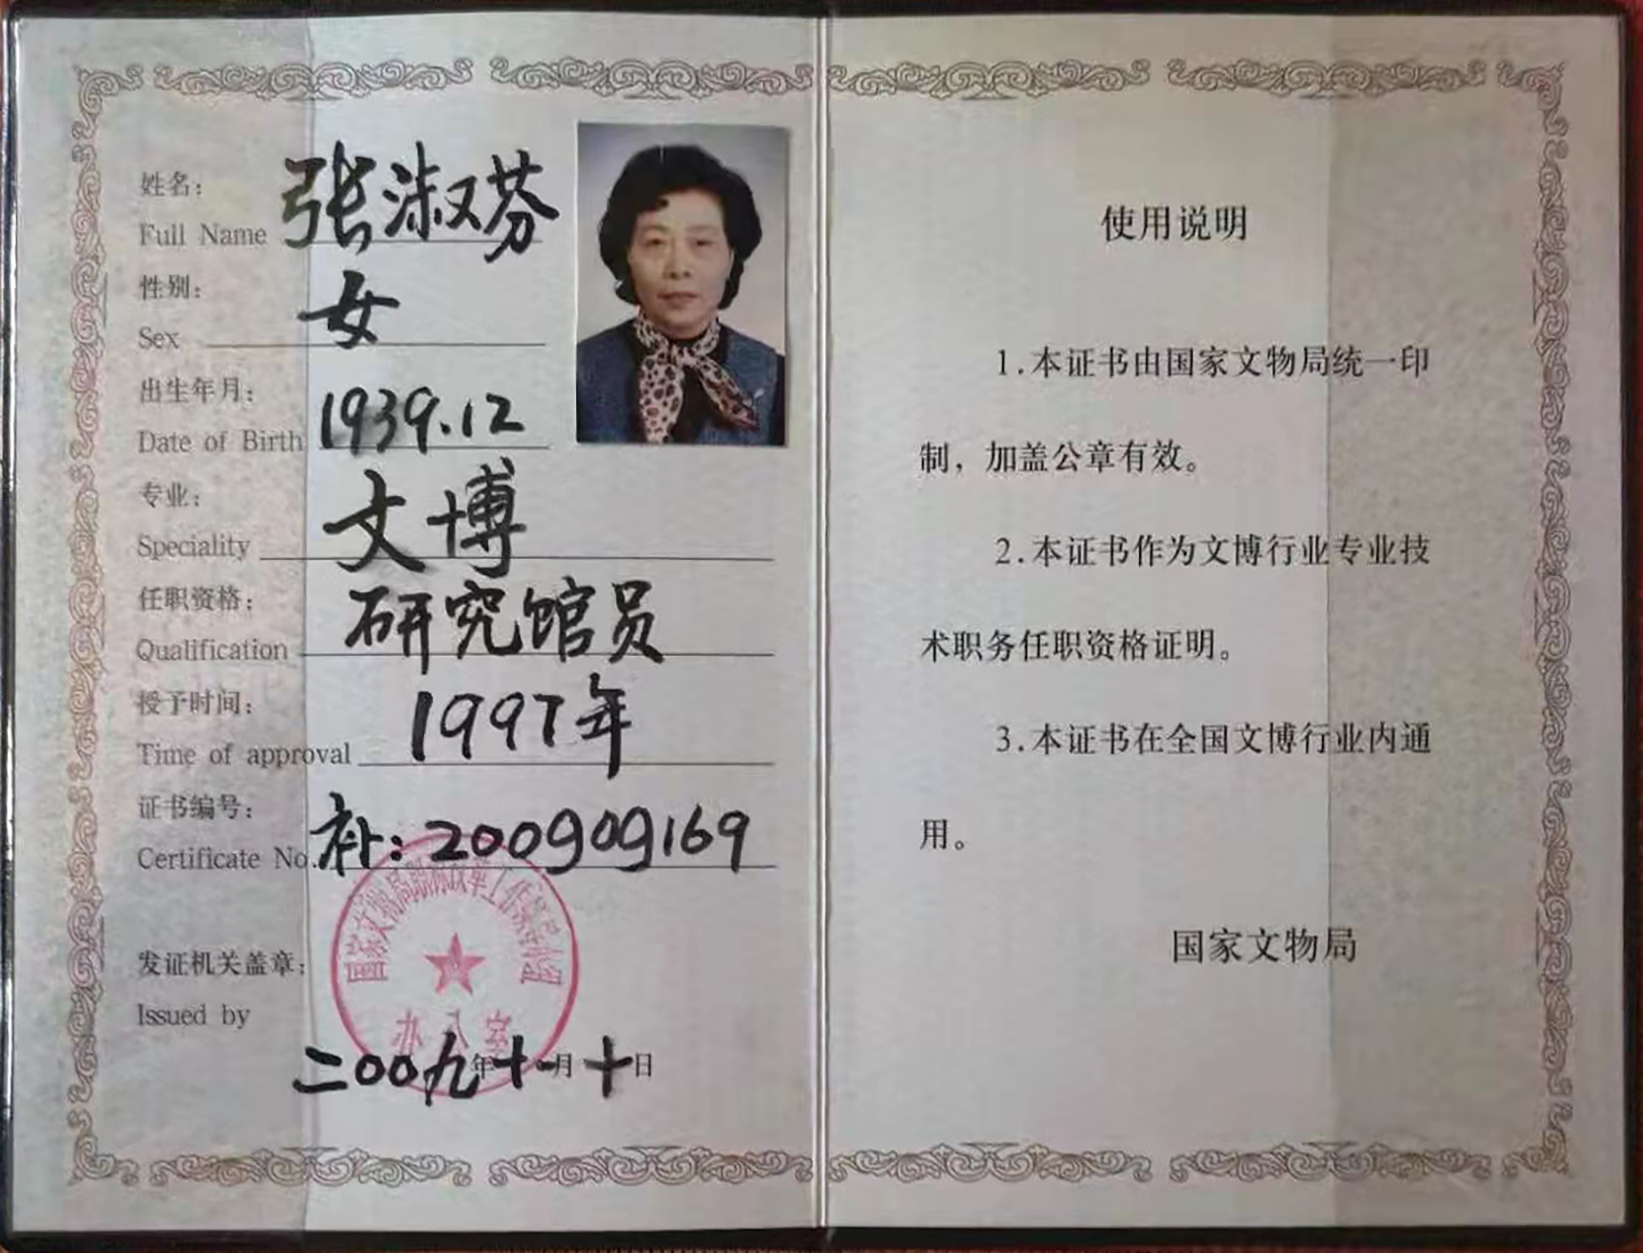 姓名：
Full Name 张淑芬
性别：
Sex 女
出生年月：
Date of Birth 1939.12
专业：
Speciality 文博
任职资格：
Qualification 研究馆员
授予时间：
Time of approval 1997年
证书编号：
Certificate No. 补：200909169
发证机关盖章：
Issued by
国家文物局
办公室
二〇〇九年十一月十日
使用说明
1.本证书由国家文物局统一印
制，加盖公章有效。
2.本证书作为文博行业专业技
术职务任职资格证明。
3.本证书在全国文博行业内通
用。
国家文物局